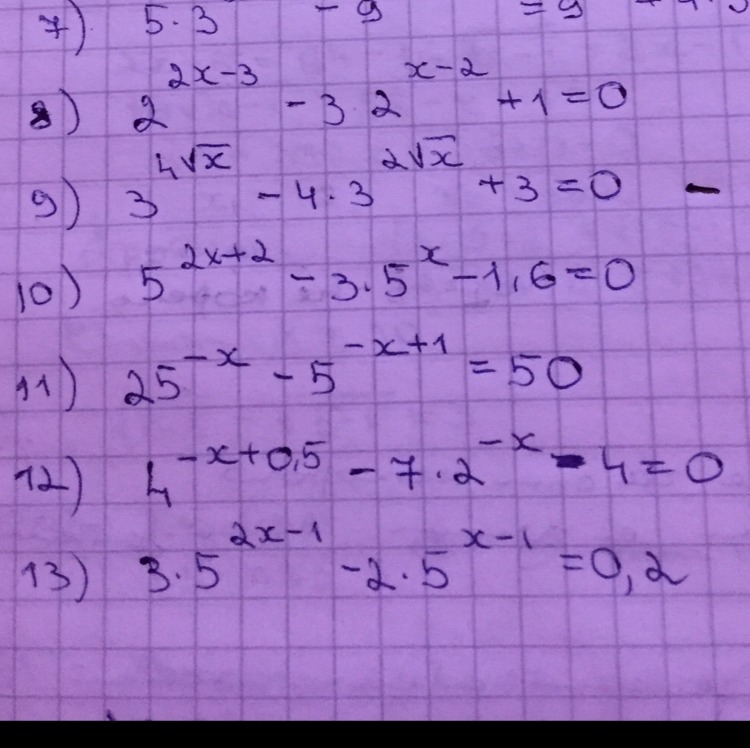 7) 5·3 - 9 = 9
8) 2^{2x-3} - 3·2^{x-2} + 1 = 0
9) 3^{4√x} - 4·3^{2√x} + 3 = 0
10) 5^{2x+2} - 3·5^{x} - 1,6 = 0
11) 25^{-x} - 5^{-x+1} = 50
12) 4^{-x+0,5} - 7·2^{-x} - 4 = 0
13) 3·5^{2x-1} - 2·5^{x-1} = 0,2